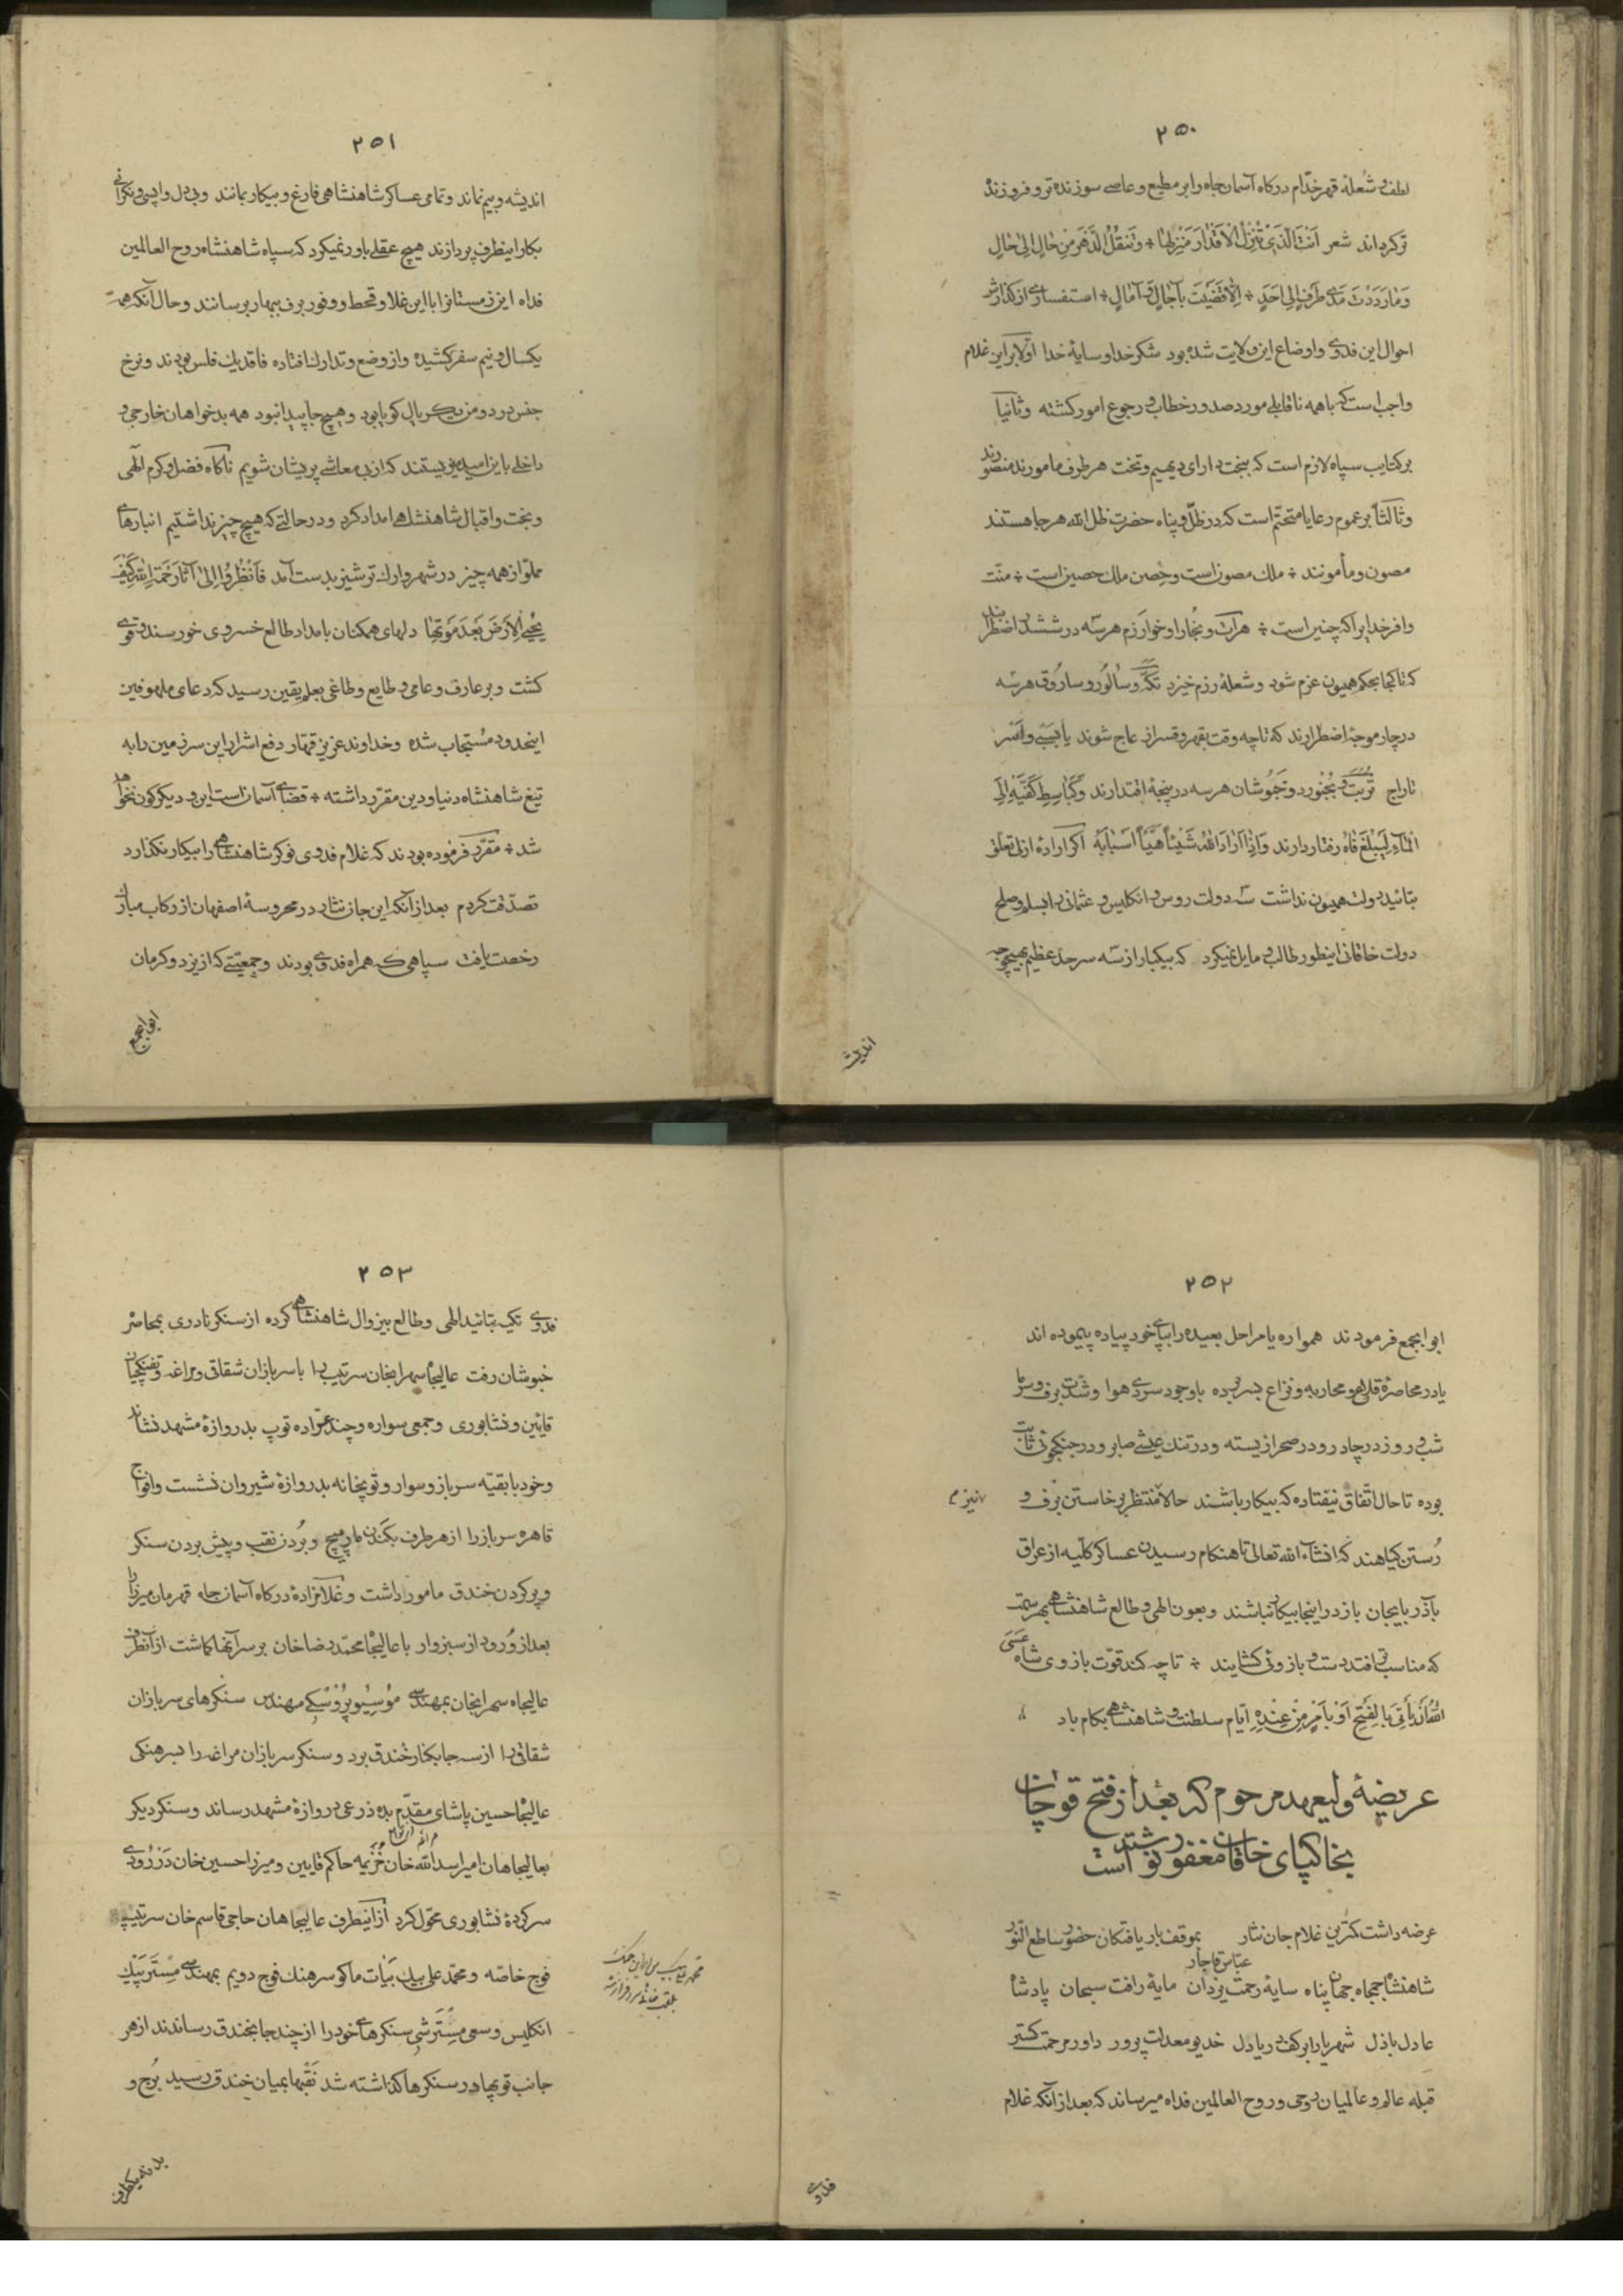 ۲۵۰
لطف و شعلهٔ قهر خدّام درکاه آسمان جاه را بر مطیع و عاصے سوزنده تر و فروزنده
تر کرداند شعر اَنْتَ الَّذی تُنْزِلُ الْاَقْدارَ مَنْزِلَها ٭ وَتَنْقُلُ الدَّهْرَ مِنْ حالٍ اِلیٰ حالٍ
وَمٰا رَدَدْتَ مَدیٰ طَرْفٍ اِلیٰ اَحَدٍ ٭ اِلّا قَضَیْتَ بِآجٰالٍ وَ آمٰالٍ ٭ استفساری از کذارش
احوال این فدوی و اوضاع این ولایت شده بود شکر خدا و سایهٔ خدا اوّلا بر این غلام
واجب است که با همه ناقابلے مورد صدور خطاب و رجوع امور کشته وثانیا
بر کتایب سپاه لازم است که ببخت دارای دیهیم و تخت هر طرف مامورند منصورند
وثالثاً بر عموم رعایا متحتّم است که در ظلّ و پناه حضرت ظل الله هر جا هستند
مصون و مأمونند ٭ ملك مصون است و حِصن ملك حصین است ٭ منّت
وافر خدایرا که چنین است ٭ هرات و بُخارا و خوارزم هر سه در ششدر اضطرابند
که تا کجا بحکم همیون عزم شود و شعلهٔ رزم خیزد تکّه و سالُور و سارُوق هر سه
در چار موجهٔ اضطرارند که تا چه وقت بقهر و قسر از عاج شوند یا بسَبْے و اَسْر
تاراج تُربَت و بُجْنُورد و خَبُوشان هر سه در پنجهٔ اقتدارند و كَباسِطِ كَفَّيْهِ اِلَی
الْمٰاءِ لِيَبْلُغَ فٰاهُ رفتار دارند وَاِذٰا اَرٰادَ اللّٰهُ شَیْئاً هَیَّأَ اَسْبٰابَهُ اکر ارادهٔ ازلی تعلّق
بتائید دولت همیون نداشت سه دولت روس و انکلیس و عثمانی را بسلم و صلح
دولت خاقانی اینطور طالب و مایل نمیکرد که بیکبار از سه سرحدّ عظیم بهیچوجه
اندیشه
۲۵۱
اندیشه و بیم نماند و تمامی عساکر شاهنشاهی فارغ و بیکار بمانند و بی دل واپسی و نکرانے
بکار اینطرف پردازند هیچ عقلے باور نمیکرد که سپاه شاهنشاه روح العالمین
فداه این زمستانرا با این غلا و قحط و وفور برف ببهار برسانند و حال آنکه همه
یکسال و نیم سفر کشیده و از وضع و تدارك افتاده فاقد یك فلس بودند و نرخ
جنس در دو من یک ریال کویا بود و هیچ جا پیدا نبود همه بدخواهان خارجی و
داخلے باین امید میزیستند که از بی معاشے پریشان شویم ناکاه فضل و کرم الٰهی
و بخت و اقبال شاهنشاهے امداد کرد و در حالتے که هیچ چیز نداشتیم انبارهای
مملوّ از همه چیز در شهر و ارك ترشیز بدست آمد فَانْظُرُوا اِلیٰ آثٰارِ رَحْمَةِ اللّٰهِ كَيْفَ
یُحْیِی الْاَرْضَ بَعْدَ مَوْتِهٰا دلهای همکنان بامداد طالع خسروی خورسند و قوی
کشت و بر عارف و عامی و طایع و طاغی بعلم یقین رسید که دعای ملهوفین
اینحدود مُستجاب شده و خداوند عزیز قهّار دفع اشرار این سرزمین را به
تیغ شاهنشاه دنیا و دین مقرّر داشته ٭ قضای آسمان است این و دیکرکون نخواهد
شد ٭ مقرّر فرموده بودند که غلام فدوی نوکر شاهنشاهی را بیکار نکذارد
تصدّقت کردم بعد از آنکه این جان نثار در محروسهٔ اصفهان از رکاب مبارك
رخصت یافت سپاهی که همراه فدوی بودند و جمعیّتے که از یزد و کرمان
ابوابجمع
۲۵۲
ابوابجمع فرمودند همواره یا مراحل بعیده را بپای خود پیاده پیموده اند
یا در محاصرهٔ قلاع و محاربه و نزاع بسر برده با وجود سردی هوا و شدّت برف و سرما
شب و روز در چادر و در صحرا زیسته و در تنك عیشے صابر و در جنکجوئی ثابت
بوده تا حال اتّفاق نیفتاده که بیکار باشند حالا منتظر برخاستن برف و
نیز م
رُستن کیاهند که انشاء الله تعالی تا هنکام رسیدن عساکر کلّیه از عراق
بآذربایجان باز در اینجا بیکار نباشند و بعون الهی و طالع شاهنشاهی بهر سمت
که مناسب تر افتد دست و بازوئی کشایند ٭ تا چه کند قوّت بازوی شاه عَسَی
اللّٰهُ اَنْ یَأتِیَ بِالْفَتْحِ اَوْ بِاَمْرٍ مِنْ عِنْدِهِ ایّام سلطنت و شاهنشاهی بکام باد
عریضهٔ ولیعهد مرحوم که بعد از فتح قوچان
بخاکپای خاقان مغفور نوشته است
عرضه داشت کمترین غلام جان نثار بموقف باریافتکان حضور ساطع النّور
عبّاس قاجار
شاهنشاه جمجاه جهان پناه سایهٔ رحمت یزدان مایهٔ رافت سبحان پادشاه
عادل باذل شهریار ابر کف دریا دل خدیو معدلت پرور داور مرحمت کستر
قبله عالم و عالمیان روحی و روح العالمین فداه میرساند که بعد از آنکه غلام
فدوی
۲۵۳
فدوی تکیه بتائید الهی و طالع بیزوال شاهنشاهی کرده از سنکر نادری بمحاصره
خبوشان رفت عالیجاه سهرابخان سرتیپ را با سربازان شقاقی و مراغه و تفنکچیان
قاین و نشابوری و جمعی سواره و چند عرّاده توپ بدروازهٔ مشهد نشاند
و خود با بقیّه سرباز و سوار و توپخانه بدروازهٔ شیروان نشست و افواج
قاهره سرباز را از هر طرف بکندن مارپیچ و بُردن نقب و پیش بردن سنکر
و پر کردن خندق مامور داشت و غلامزادهٔ درکاه آسمان جاه قهرمان میرزا را
بعد از وُرود از سبزوار با عالیجاه محمّد رضا خان بر سر آنها کماشت از آنطرف
عالیجاه سهرابخان بمهندسی مؤسیو پرُوْسْکے مهندس سنکرهای سربازان
شقاقی را از سه جا بکنار خندق برد و سنکر سربازان مراغه را بسرهنکی
عالیجاه حسین پاشای مقدّم بده ذرعی دروازهٔ مشهد رساند و سنکر دیکر
بعالیجاهان امیر اسد الله خان خُزیمه حاکم قاین و میرزا حسین خان دَرُودی
سرکردهٔ نشابوری محوّل کرد از اینطرف عالیجاهان حاجی قاسم خان سرتیپ
فوج خاصّه و محمّد علی بیك بَیٰات ماکو سرهنك فوج دویم بمهندسی مِسْتَر بَیْك
انکلیس و سعی مِسْتَر شی سنکرهای خود را از چند جا بخندق رساندند از هر
جانب توپها در سنکرها کذاشته شد نَقْبها بمیان خندق رسید بُرج و
بدنه یکطرف